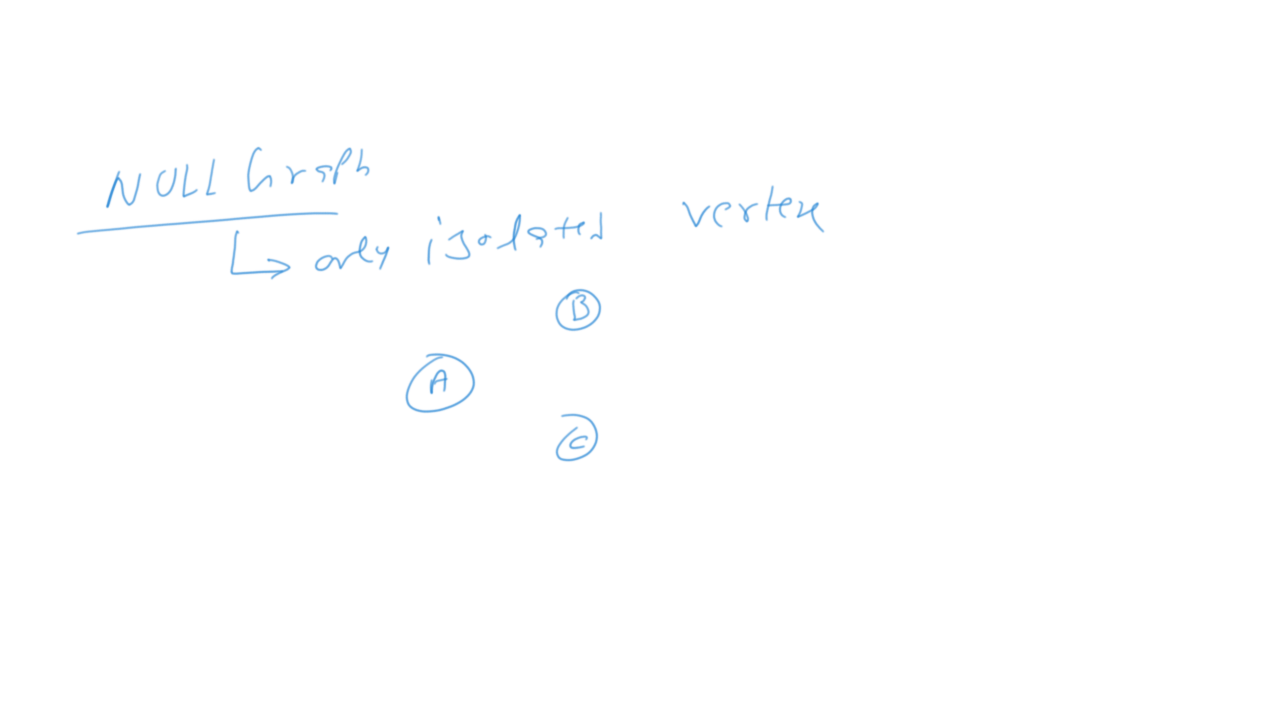 NULL Graph
only isolated vertex
B
A
C